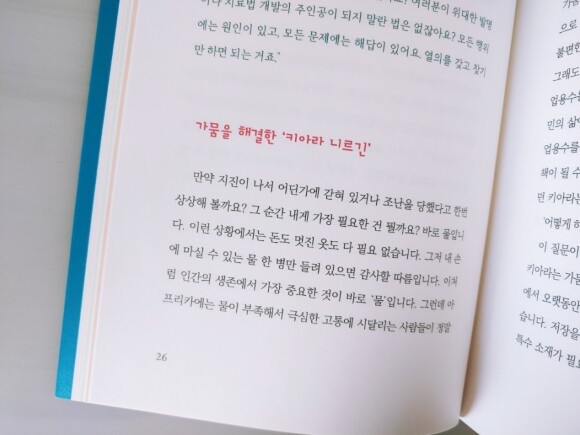 이나 치료법 개발의 주인공이 되지 말란 법은 없잖아요? 모든 행위
에는 원인이 있고, 모든 문제에는 해답이 있어요. 열의를 갖고 찾기
만 하면 되는 거죠."
가뭄을 해결한 '키아라 니르긴'
만약 지진이 나서 어딘가에 갇혀 있거나 조난을 당했다고 한번
상상해 볼까요? 그 순간 내게 가장 필요한 건 뭘까요? 바로 물입니
다. 이런 상황에서는 돈도 멋진 옷도 다 필요 없습니다. 그저 내 손
에 마실 수 있는 물 한 병만 들려 있으면 감사할 따름입니다. 이처
럼 인간의 생존에서 가장 중요한 것이 바로 '물'입니다. 그런데 아
프리카에는 물이 부족해서 극심한 고통에 시달리는 사람들이 정말
26
으로
불편한
그래도
업용수를
민의 삶이
업용수를
책이 될 수
던 키아라는
'어떻게 하
이 질문이
키아라는 가뭄
에서 오랫동안
습니다. 저장을
특수 소재가 필요